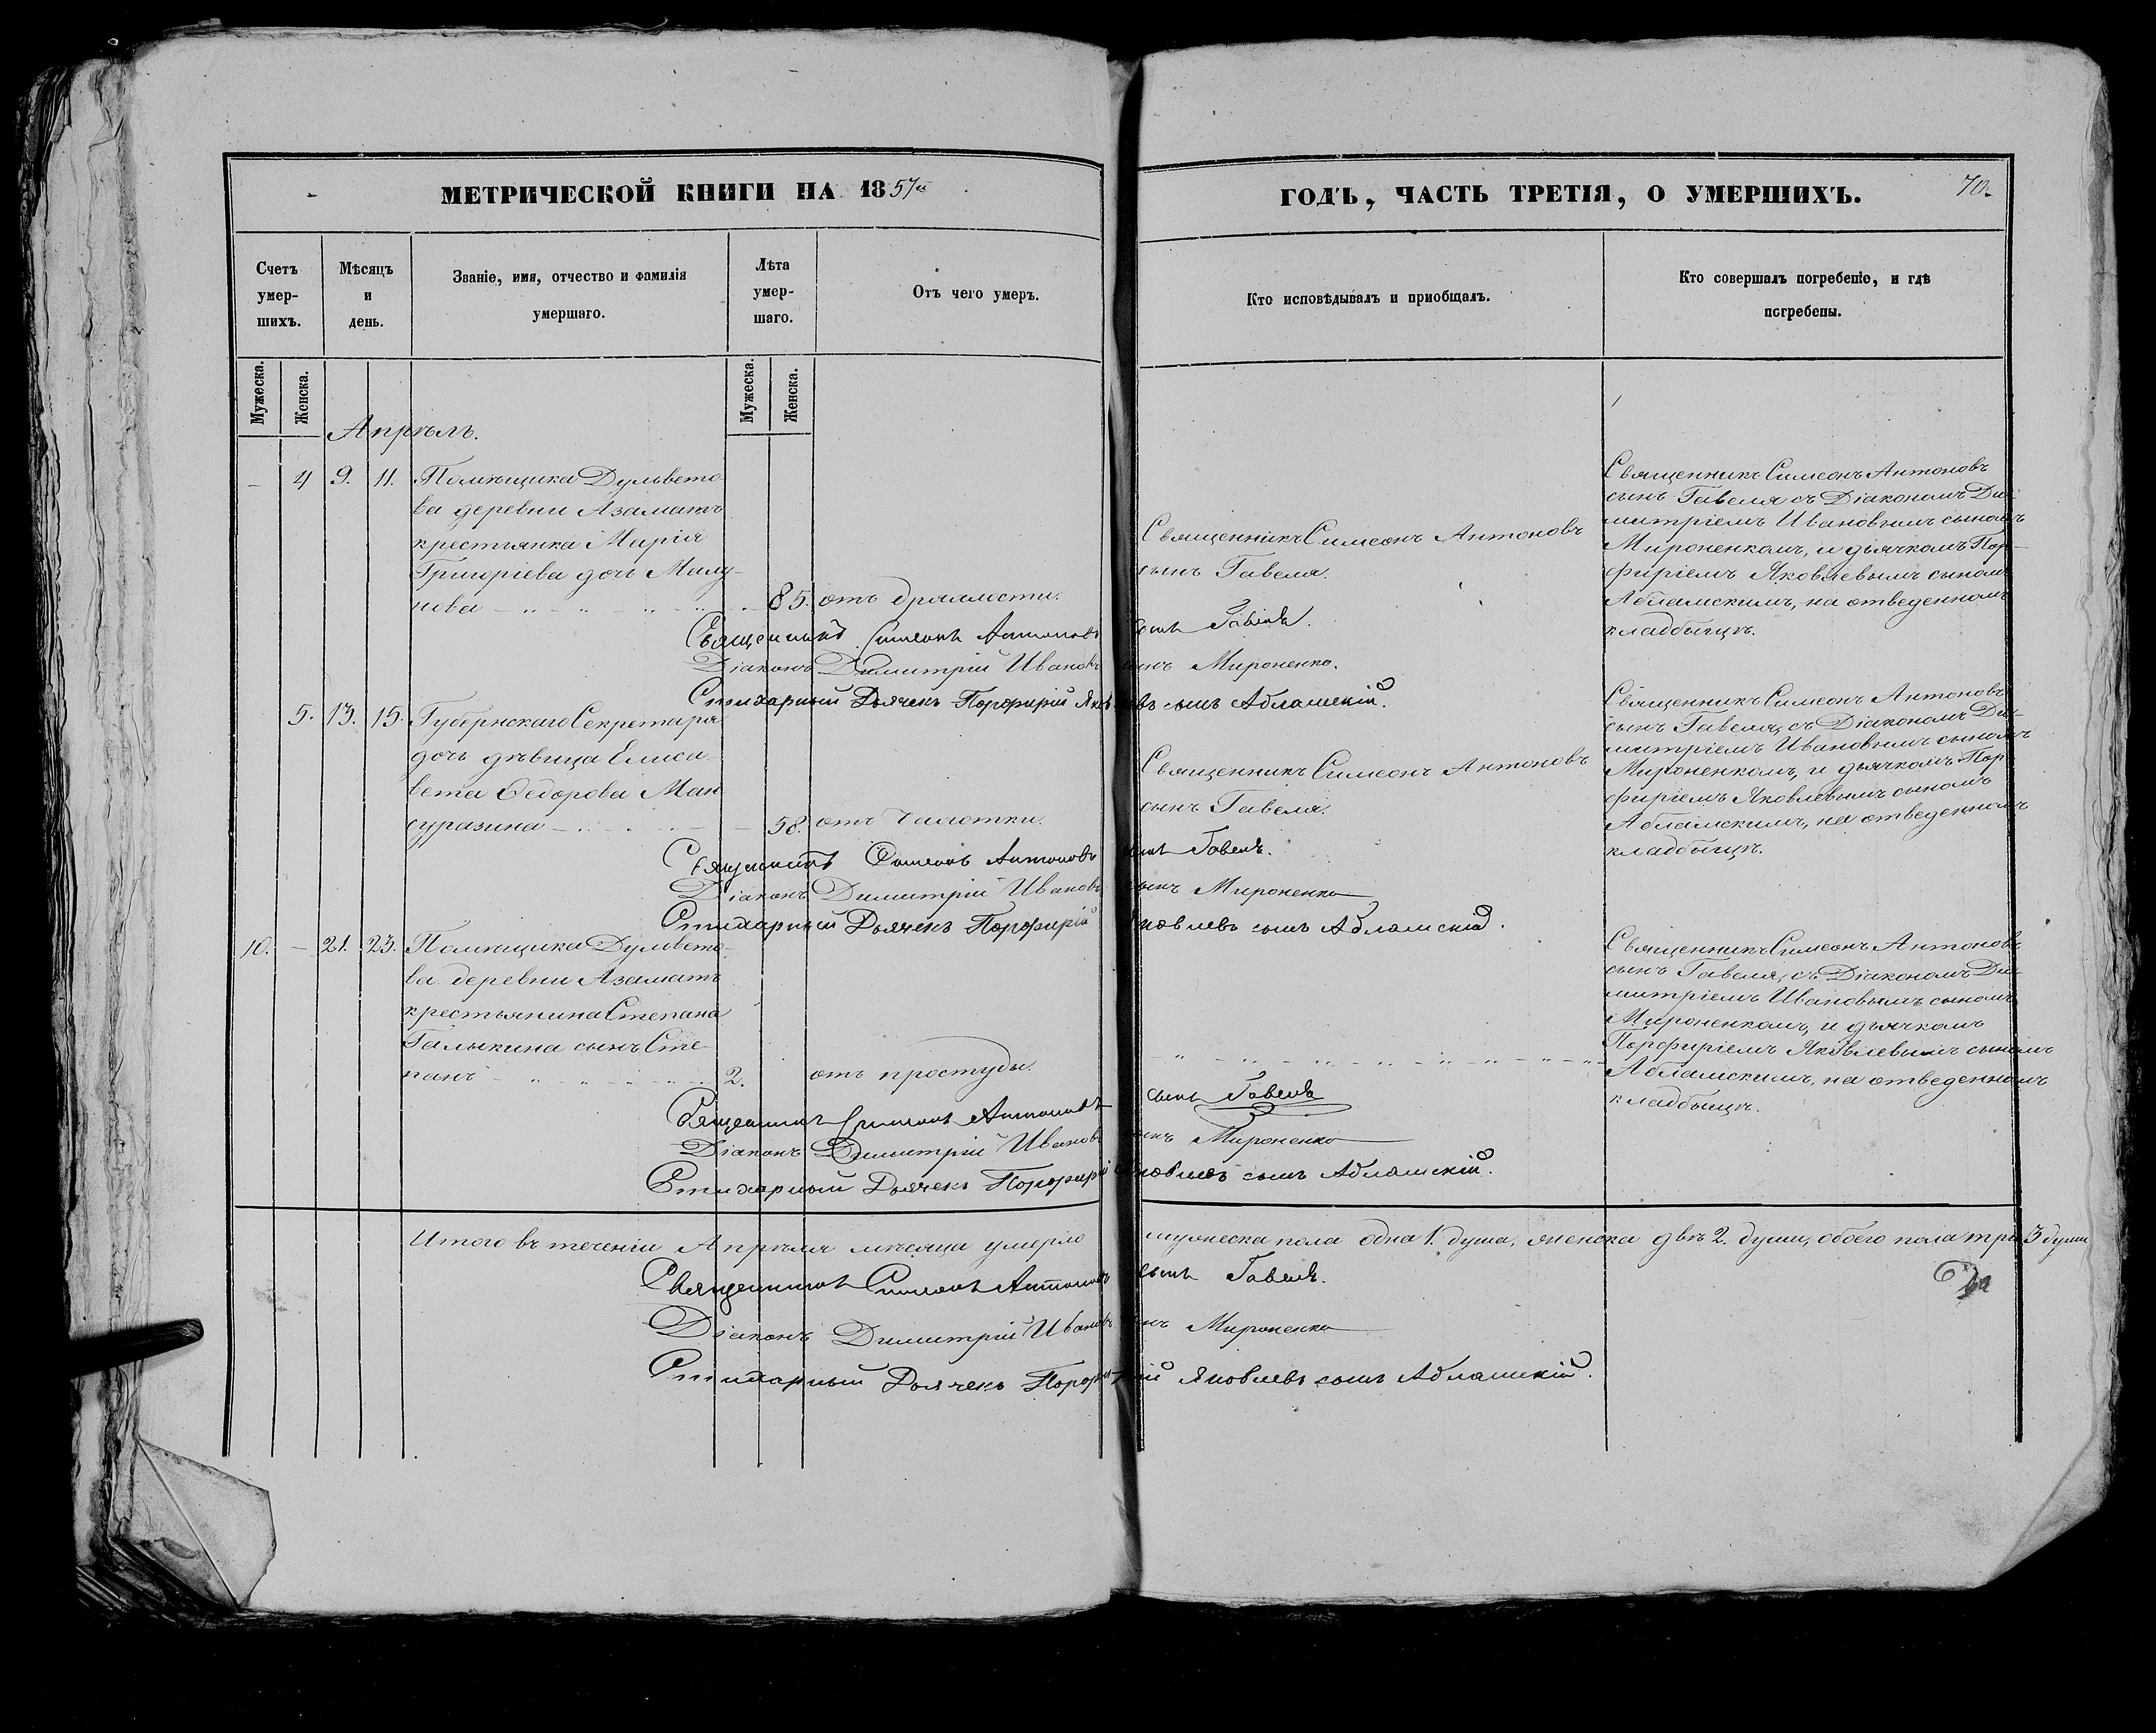 МЕТРИЧЕСКОЙ КНИГИ НА 1857й
ГОДЪ, ЧАСТЬ ТРЕТІЯ, О УМЕРШИХЪ.
70.
Счетъ
умер-
шихъ.
Мѣсяцъ
и
день.
Званіе, имя, отчество и фамилія
умершаго.
Лѣта
умер-
шаго.
Отъ чего умеръ.
Кто исповѣдывалъ и приобщалъ.
Кто совершалъ погребеніе, и гдѣ
погребены.
Мужеска.
Женска.
Мужеска.
Женска.
Апрѣль.
4 9. 11. Помѣщика Дульвето-
ва деревни Азаматъ
крестьянка Марія
Григоріева дочь Малу-
нова 85. отъ дряхлости.
Священникъ Симеонъ Антоновъ
сынъ Гавеля.
Священникъ Симеонъ Антоновъ
сынъ Гавеля съ Діакономъ Ди-
митріемъ Ивановымъ сыномъ
Мироненкомъ, и дьячкомъ Пор-
фиріемъ Яковлевымъ сыномъ
Абламскимъ, на отведенномъ
кладбищѣ.
Священникъ Симеонъ Антоновъ сынъ Гавеля.
Діаконъ Димитрій Ивановъ сынъ Мироненко.
Стихарный Дьячекъ Порфирій Яковлевъ сынъ Абламскій.
5. 13. 15. Губернскаго Секретаря
дочь дѣвица Елиса-
вета Ѳедорова Ман
суразина 58. отъ чахотки.
Священникъ Симеонъ Антоновъ
сынъ Гавеля.
Священникъ Симеонъ Антоновъ
сынъ Гавеля, съ Діакономъ Ди-
митріемъ Ивановымъ сыномъ
Мироненкомъ, и дьячкомъ Пор-
фиріемъ Яковлевымъ сыномъ
Абламскимъ, на отведенномъ
кладбищѣ.
Священникъ Симеонъ Антоновъ сынъ Гавеля.
Діаконъ Димитрій Ивановъ сынъ Мироненко
Стихарный Дьячекъ Порфирій Яковлевъ сынъ Абламскій.
10. – 21. 23. Помѣщика Дульвето-
ва деревни Азаматъ
крестьянина Степана
Галыкина сынъ Сте-
панъ 2. отъ простуды.
Священникъ Симеонъ Антоновъ
сынъ Гавеля, съ Діакономъ Ди-
митріемъ Ивановымъ сыномъ
Мироненкомъ, и дьячкомъ
Порфиріемъ Яковлевымъ сыномъ
Абламскимъ, на отведенномъ
кладбищѣ.
Священникъ Симеонъ Антоновъ сынъ Гавеля
Діаконъ Димитрій Ивановъ сынъ Мироненко
Стихарный Дьячекъ Порфирій Яковлевъ сынъ Абламскій.
Итого въ теченіи Апрѣля мѣсяца умерло мужеска пола одна 1. душа, женска двѣ 2. души, обоего пола три 3 души
Священникъ Симеонъ Антоновъ сынъ Гавеля.
Діаконъ Димитрій Ивановъ сынъ Мироненко
Стихарный Дьячекъ Порфирій Яковлевъ сынъ Абламскій.